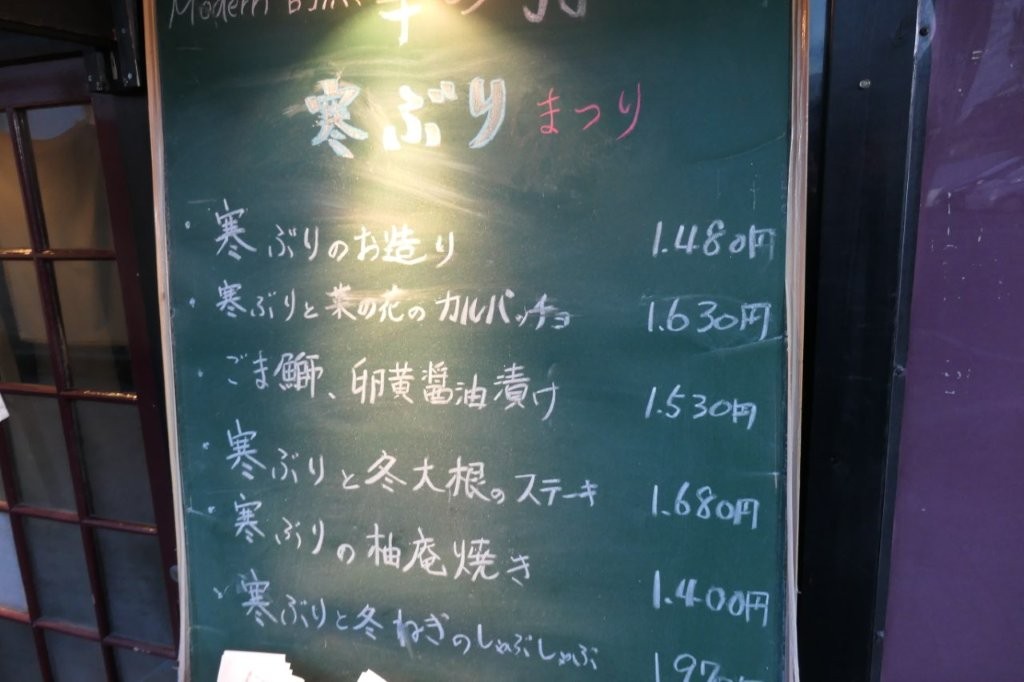 Modern
寒ぶり まつり
・寒ぶりのお造り 1.480円
・寒ぶりと菜の花のカルパッチョ 1.630円
・ごま鰤、卵黄醤油漬け 1.530円
・寒ぶりと冬大根のステーキ 1.680円
・寒ぶりの柚庵焼き 1.400円
・寒ぶりと冬ねぎのしゃぶしゃぶ